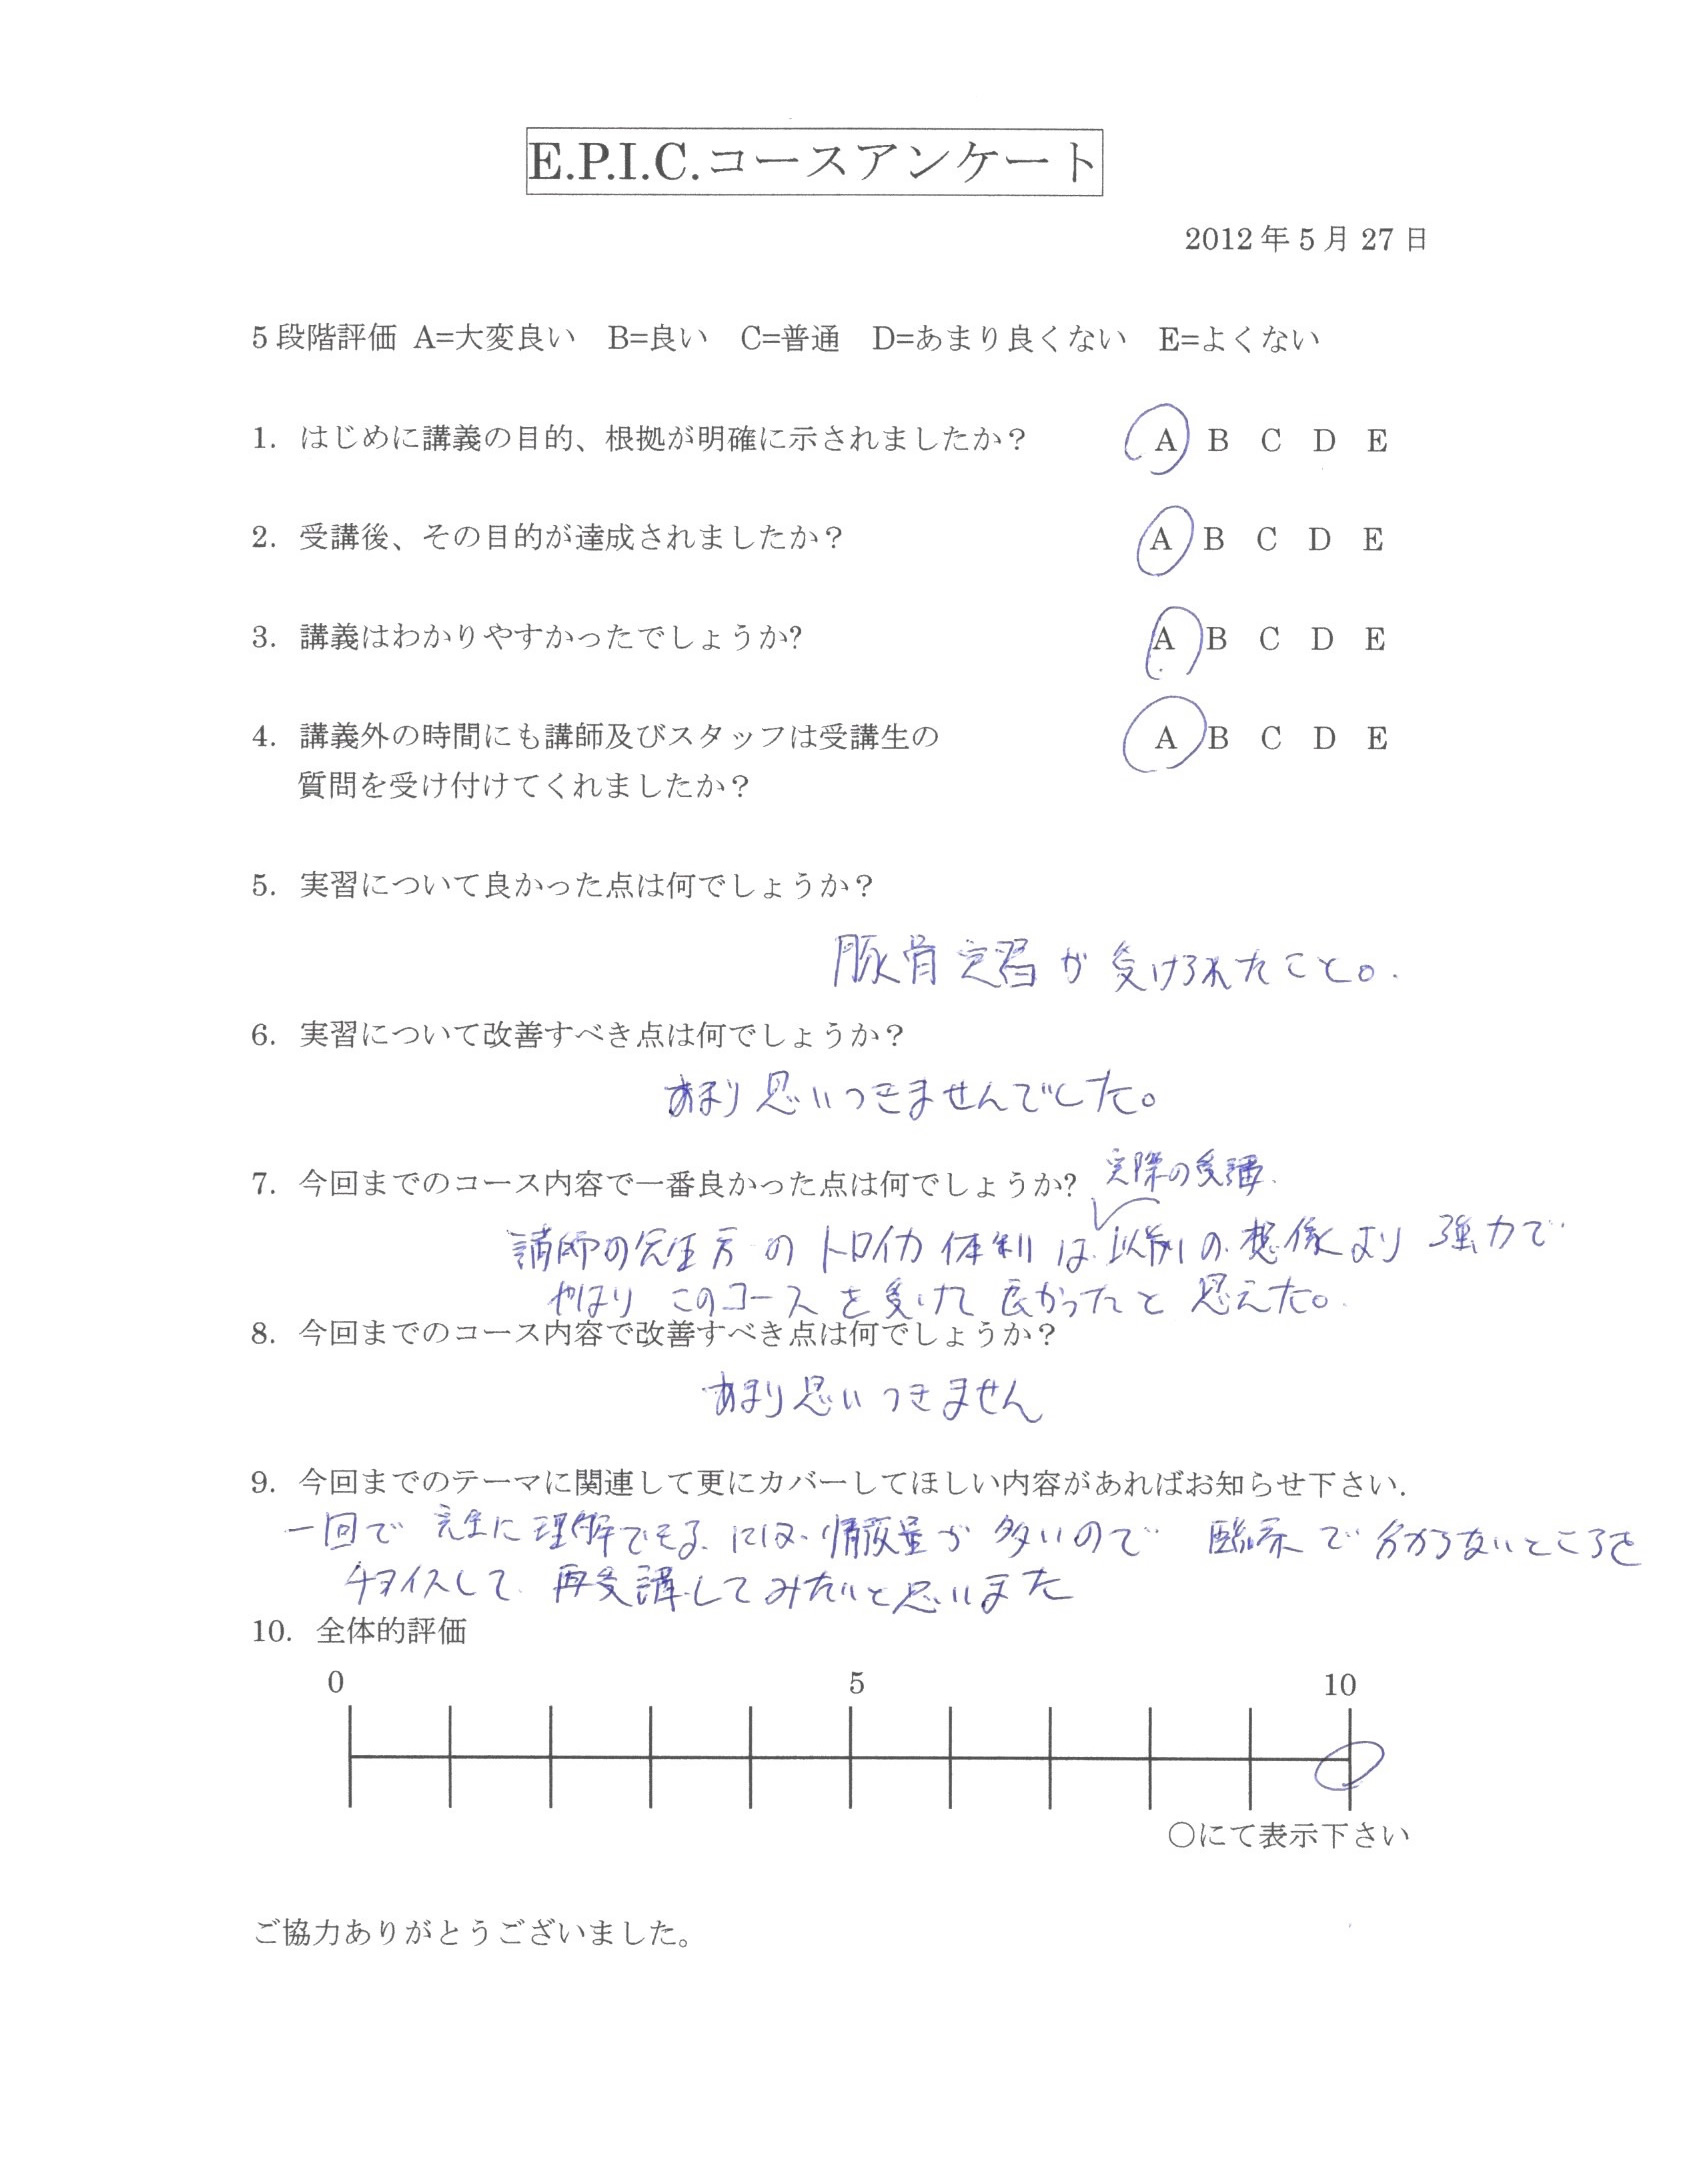 E.P.I.C.コースアンケート
2012年5月27日
5段階評価 A=大変良い B=良い C=普通 D=あまり良くない E=よくない
1. はじめに講義の目的、根拠が明確に示されましたか？ A B C D E
2. 受講後、その目的が達成されましたか？ A B C D E
3. 講義はわかりやすかったでしょうか? A B C D E
4. 講義外の時間にも講師及びスタッフは受講生の A B C D E
質問を受け付けてくれましたか？
5. 実習について良かった点は何でしょうか？
豚骨実習が受けられたこと。
6. 実習について改善すべき点は何でしょうか？
あまり思いつきませんでした。
7. 今回までのコース内容で一番良かった点は何でしょうか? 実際の受講
講師の先生方のトロイカ体制は以前の想像より強力で
やはりこのコースを受けて良かったと思えた。
8. 今回までのコース内容で改善すべき点は何でしょうか？
あまり思いつきません
9. 今回までのテーマに関連して更にカバーしてほしい内容があればお知らせ下さい.
一回で完全に理解できるには情報量が多いので臨床で分からないところを
チョイスして再受講してみたいと思いました
10. 全体的評価
0 5 10
○にて表示下さい
ご協力ありがとうございました。